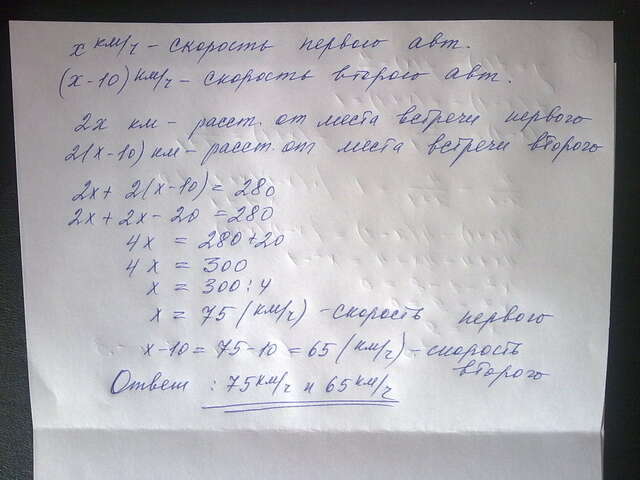 x км/ч - скорость первого авт.
(x-10) км/ч - скорость второго авт.
2x км - расст. от места встречи первого
2(x-10) км - расст. от места встречи второго
2x + 2(x-10) = 280
2x + 2x - 20 = 280
4x = 280+20
4x = 300
x = 300:4
x = 75 (км/ч) - скорость первого
x-10 = 75-10 = 65 (км/ч) - скорость
второго
Ответ : 75 км/ч и 65 км/ч